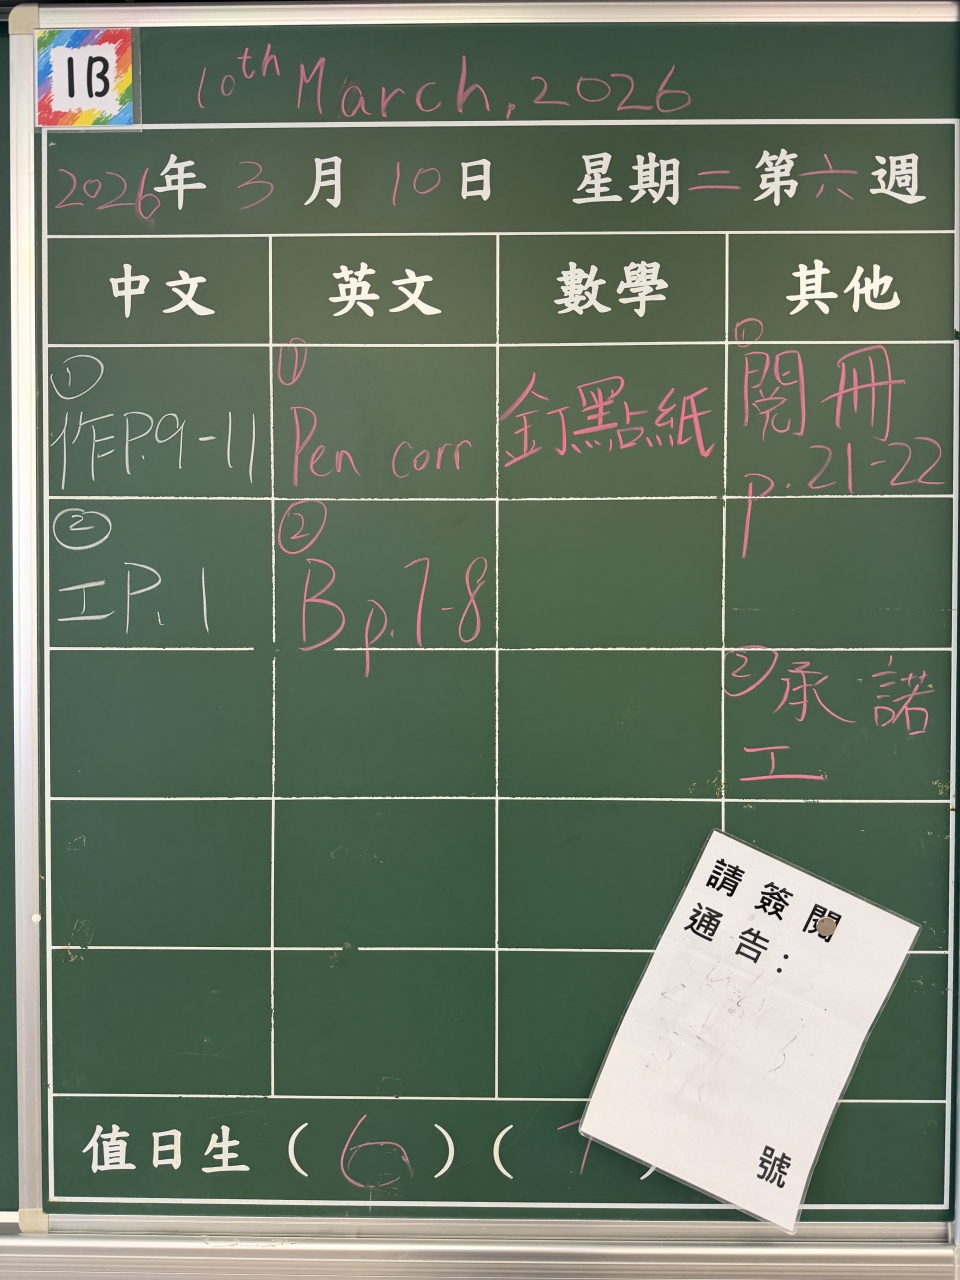 1B
10th March, 2026
2026年 3 月 10 日 星期二第六週
中文 英文 數學 其他
① ① ①
作P.9-11 Pen corr 釘點紙 閱冊
p.21-22
② ②
工P.1 B p.7-8
② 承諾
工
請簽閱
通告：
號
值日生（6）（